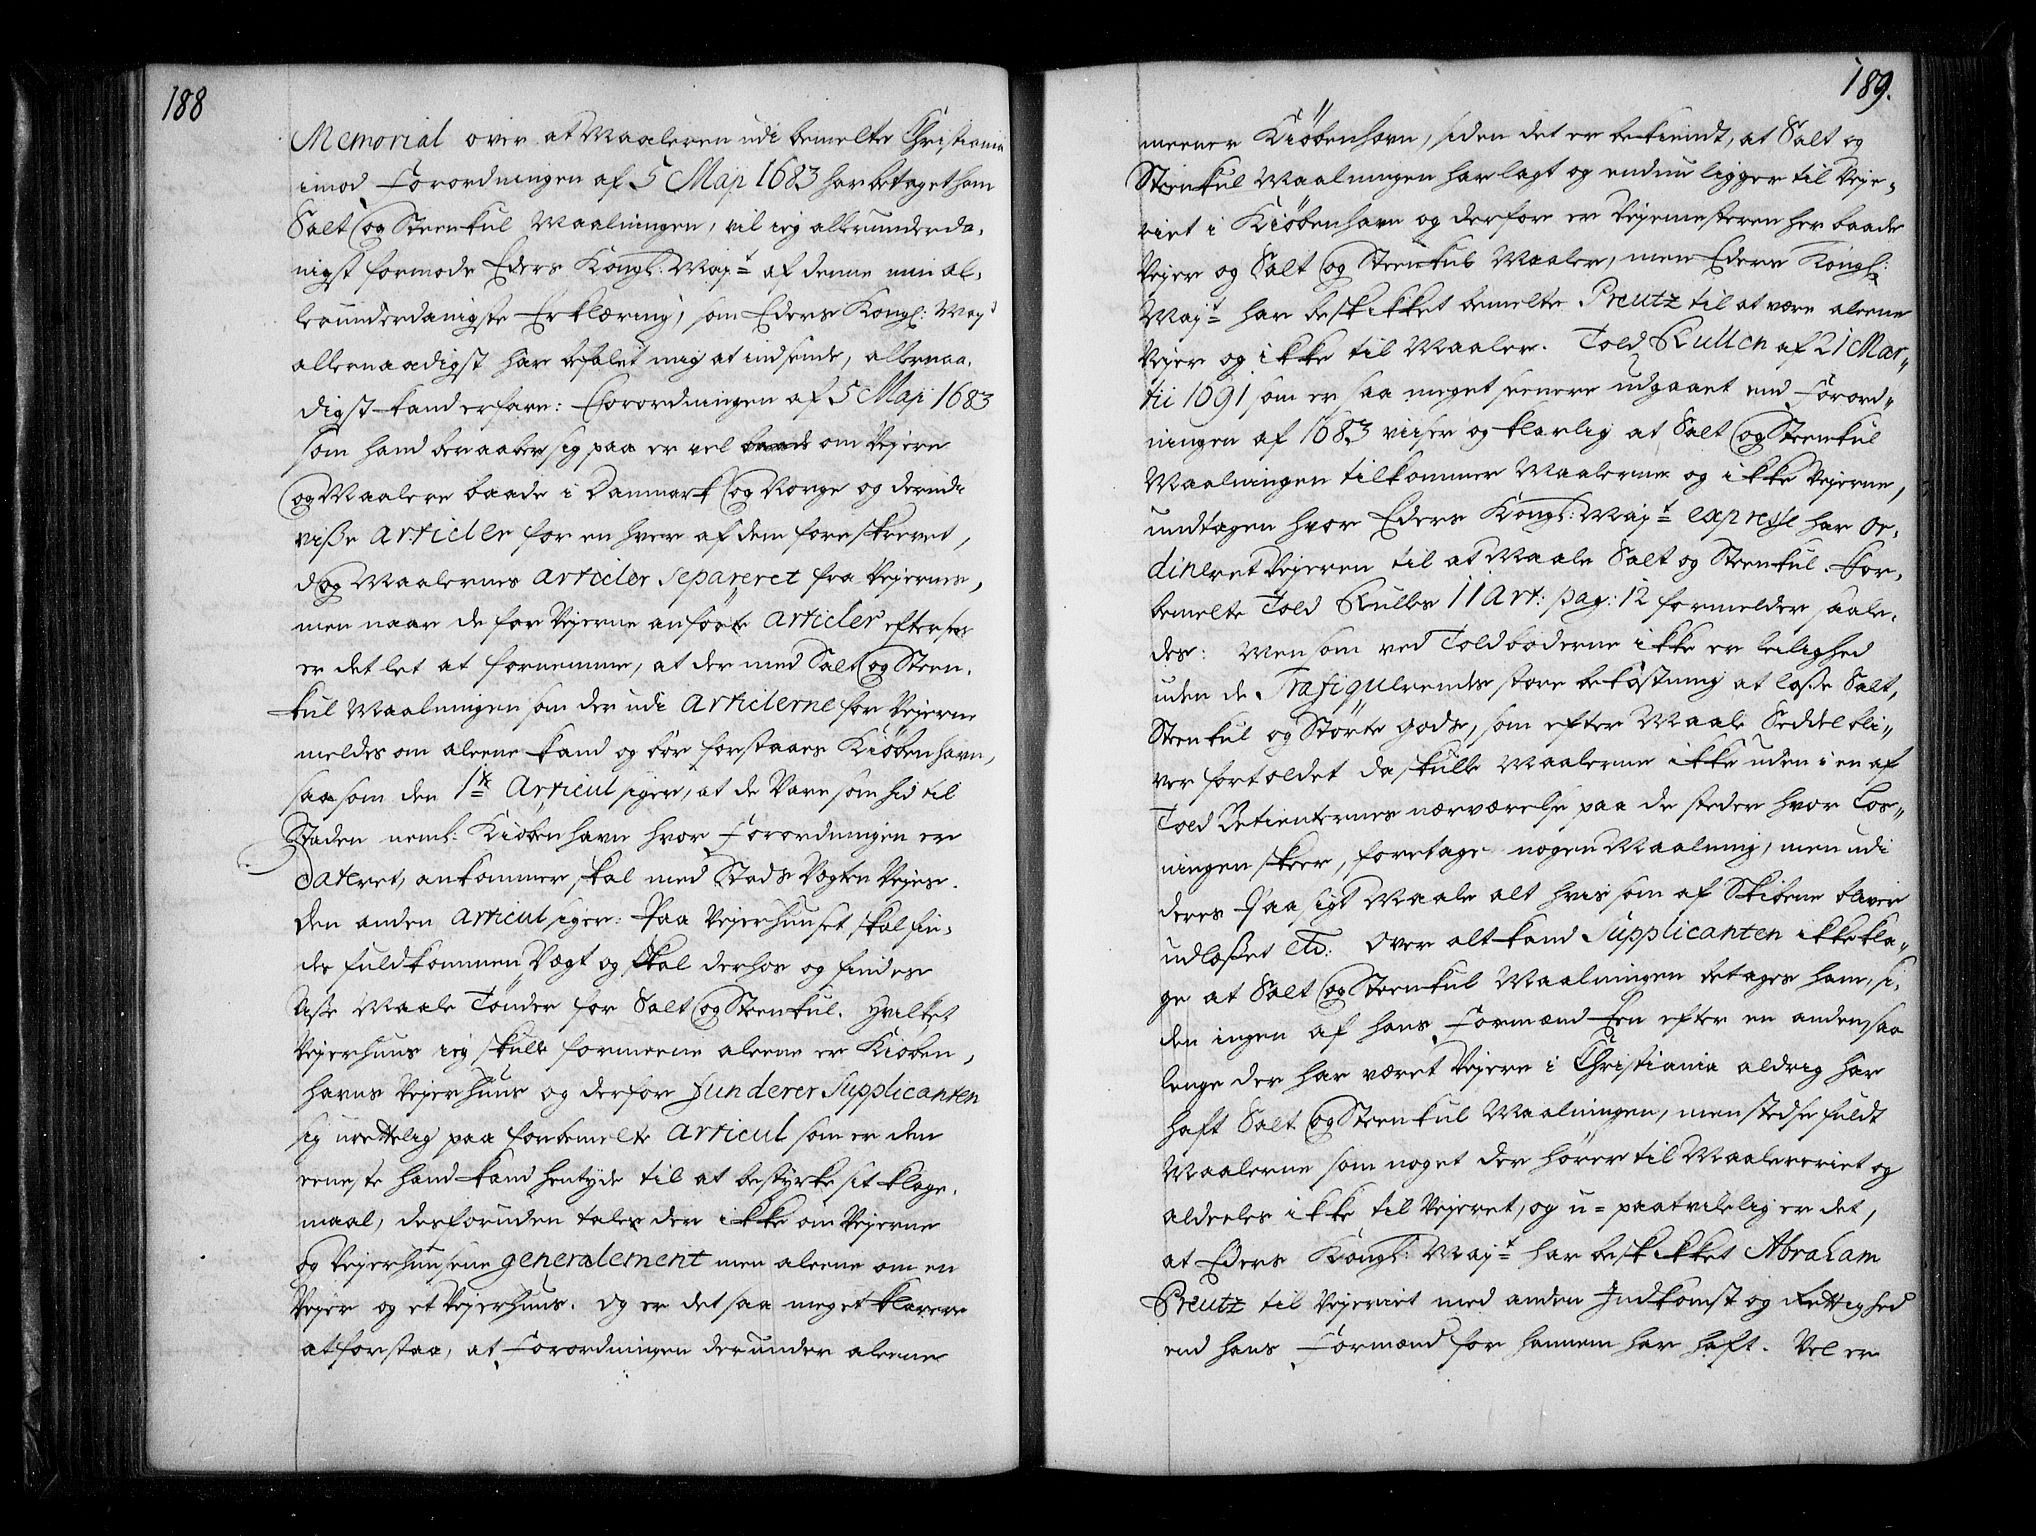 188
Memorial over at Maaleren udi bemelte Christiania
imod Forordningen af 5 Maji 1683 har betaget ham
Salt og Steenkul Maalningen, vil ieg allerunderda,
nigst formode Eders Kongl: Mayt af denne min al,
lerunderdanigste Erklæring, som Eders Kongl: Mayt
allernaadigst har befalet mig at indsende, allernaa,
digst kand erfare: Forordningen af 5 Maji 1683
som hand beraaber sig paa er vel om Vejere
og Maalere baade i Danmark og Norge og derudi
visse articler for en hver af dem foreskrevet,
dog Maalernes articler separeret fra Vejernes,
men naar de for Vejerne anførte articler eftersees
er det let at fornemme, at der med Salt og Steen,
kul Maalningen som der udi articlerne for Vejerne
meldes om aleene kand og bør forstaaes Kiøbenhavn,
saasom den 1te Articul siger, at de Vare som hid til
Staden neml: Kiøbenhavn hvor Forordningen er
dateret, ankommer skal med Stads Vegten Vejese.
Den anden articul siger: Paa Vejerhuuset skal fin,
des fuldkommen Vegt og skal derhos og findes
Visse Maale Tønder for Salt og Steenkul. Hvilket
Vejerhuus ieg skulle formeene aleene er Kiøben,
havns Vejerhuus og derfor funderer Supplicanten
sig urettelig paa forbemelte articul som er den
eeneste hand kand hentyde til at bestyrke sit klage,
maal, desforuden tales der ikke om Vejerne
og Vejerhuusene generalement men aleene om en
Vejer og et Vejerhuus. Og er det saa meget klarere
at forstaa, at Forordningen derunder aleene
189.
meener Kiøbenhavn, siden det er bekiendt, at Salt og
Steenkul Maalningen har lagt og endnu ligger til Veje,
riet i Kiøbenhavn og derfore er Vejemesteren her baade
Vejer og Salt og Steenkul Maaler, men Eders Kongl:
Mayt har beskikket bemelte Preutz til at være aleene
Vejer og ikke til Maaler. Told Rullen af 21 Mar,,
tii 1691 som er saa meget seenere udgaaet end Forord,,
ningen af 1683 viiser og klarlig at Salt og Steenkul
Maalningen tilkommer Maalerne og ikke Vejerne,
undtagen hvor Eders Kongl: Mayt expresse har or,
dineret Vejeren til at Maale Salt og Steenkul. For,
bemelte Told Rulles 11 Art: pag: 12 formelder saale,
des: Men som ved Toldboderne ikke er leilighed
uden de Trafiquerendes store bekostning at losse Salt,
Steenkul og Størte gods, som efter Maale Seddel bli,,
ver fortoldet da skulle Maalerne ikke uden i en af
Told Betienternes nærværelse paa de steder hvor Los,,
ningen skeer, foretage nogen Maalning, men udi
deres Paasigt Maale alt hvis som af Skibene bliver
udlosset etc: Over alt kand Supplicanten ikke kla,,
ge at Salt og Steenkul Maalningen betages ham, si,
den ingen af hans Formænd Een efter en anden saa
lenge der har været Vejere i Christiania aldrig har
haft Salt og Steenkul Maalningen, men stedse fuldt
Maalerne som noget der hører til Maaleriet og
aldeeles ikke til Vejeriet, og u-paatvilelig er det,
at Eders Kongl: Mayt har beskikket Abraham
Preutz til Vejeriet med anden Indkomst og Rettighed
end hans Formænd for hannem har haft. Vel er